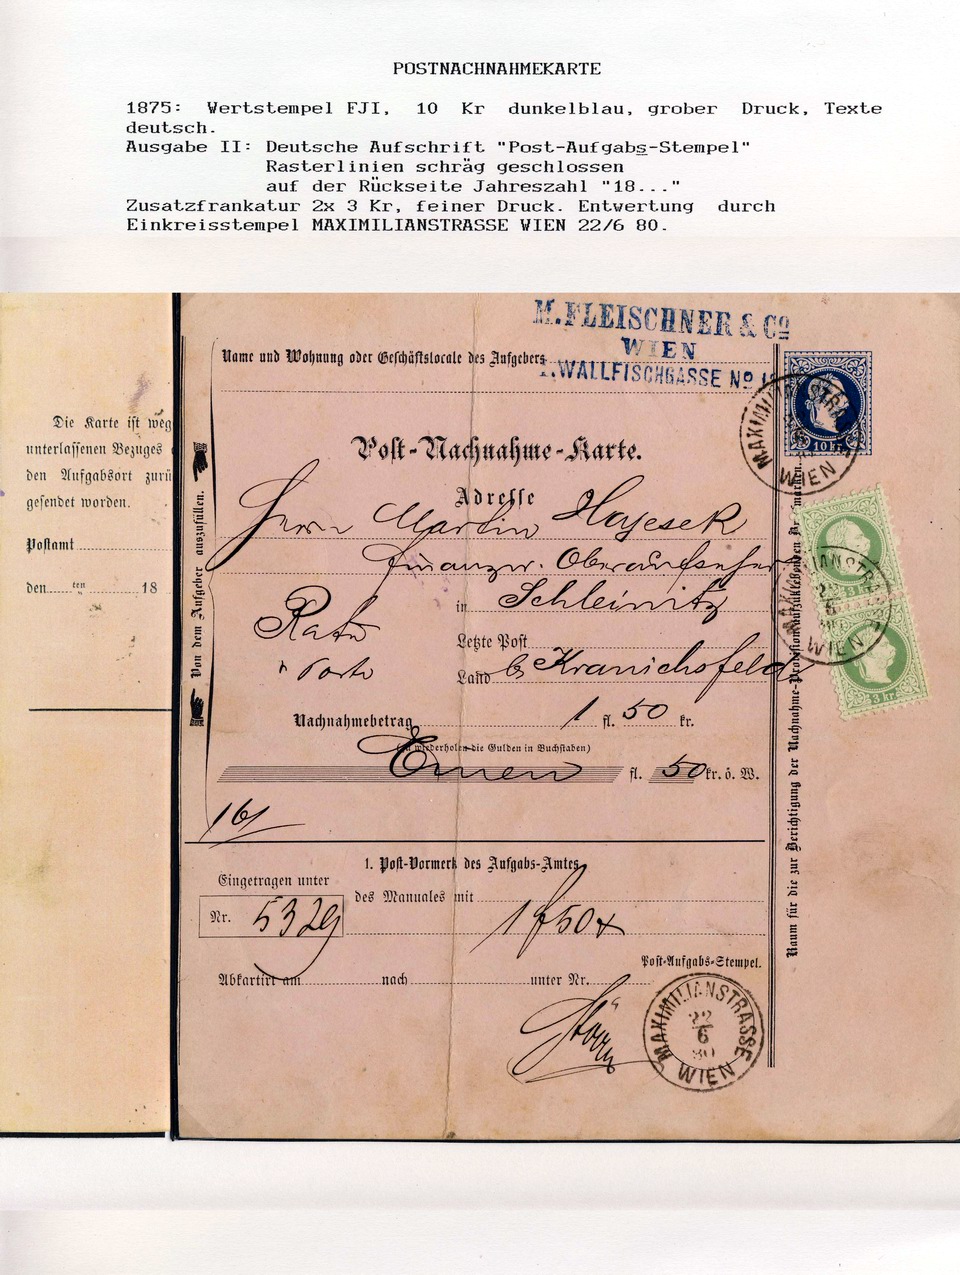 POSTNACHNAHMEKARTE
1875: Wertstempel FJI, 10 Kr dunkelblau, grober Druck, Texte
deutsch.
Ausgabe II: Deutsche Aufschrift "Post-Aufgabs-Stempel"
Rasterlinien schräg geschlossen
auf der Rückseite Jahreszahl "18..."
Zusatzfrankatur 2x 3 Kr, feiner Druck. Entwertung durch
Einkreisstempel MAXIMILIANSTRASSE WIEN 22/6 80.
M. FLEISCHNER & Co
WIEN
I. WALLFISCHGASSE No
Name und Wohnung oder Geschäftslocale des Aufgebers
10 Kr.
MAXIMILIANSTRA
WIEN
Post-Nachnahme-Karte.
Adresse
Herrn Martin Hayesek
Finanzw. Oberaufseher
in Schleinitz
Letzte Post
Land bei Kranichsfeld
Rate
Porto
Nachnahmebetrag 1 fl. 50 kr.
(zu wiederholen die Gulden in Buchstaben)
Einen fl. 50 kr. ö. W.
161
1. Post-Vormerk des Aufgabs-Amtes
Eingetragen unter
des Manuales mit
Nr. 5329
1 f 50 x
Post-Aufgabs-Stempel.
Abkartirt am nach unter Nr.
MAXIMILIANSTRASSE
22
6
80
WIEN
Von dem Aufgeber auszufüllen.
Raum für die zur Berichtigung der Nachnahme-Provision aufzuklebenden Briefmarken.
MAXIMILIANSTRA
22
6
WIEN
3 kr.
3 kr.
Die Karte ist weg
unterlassenen Bezuges
den Aufgabsort zurü
gesendet worden.
Postamt
den ten 18